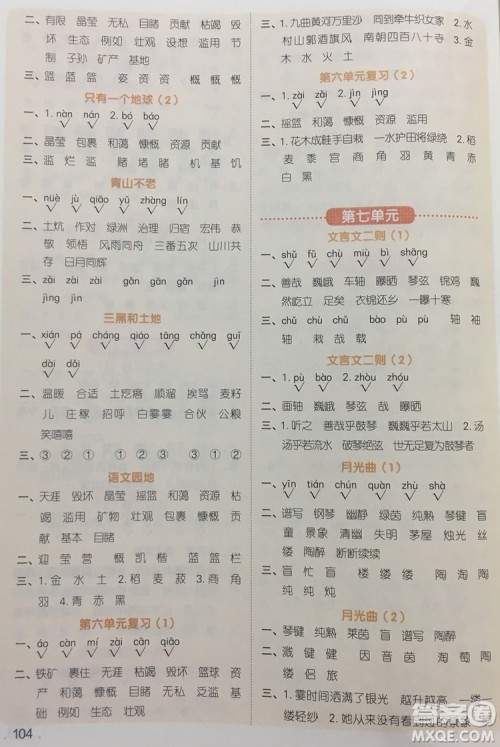 二、晶莹 自然 无私 目睹 贡献 枯竭 毁
坏 生态 例如 壮观 设想 滥用 节
制 子孙 矿产 基地
三、篮 蓝 篮 姿 资 资 慨 慨 慨
只有一个地球(2)
一、1. nàn nán 2. bó báo
二、晶莹 包裹 和蔼 资源 慷慨 目睹
三、滥 烂 滥 赌 堵 睹 机 基 饥
青山不老
一、nüè jù qiǎo yǔ zhàng lín
二、土炕 作对 绿洲 治理 归宿 宏伟 恭
敬 领悟 风雨同舟 三番五次 山川共
存 日月同辉
三、zài zài zāi chéng chéng chēng
三黑和土地
一、xián pá cháng qiáo tǎng chǎng guǐ
dài dāi
二、温暖 合适 土疙瘩 顺溜 挨骂 麦籽
儿 庄稼 招呼 白蒌蒌 合伙 公粮
笑嘻嘻
三、③ ② ① ② ① ② ①
语文园地
一、天涯 毁坏 晶莹 摇篮 和蔼 资源 枯
竭 滥用 矿物 壮观 包裹 贡献 慷慨
威胁 基本 目睹
二、迎 莹 营 慨 凯 楷 蓝 篮 栏
三、1. 金 水 土 2. 稻 麦 菽 3. 商 角
羽 4. 青 赤 黑
第六单元复习(1)
一、áo càn mí zāi cān qiāo
二、铁矿 裹住 无涯 威胁 毁坏 篮球 资
产 和蔼 目的 目睹 无私 泛滥 基
础 例如 枯竭 贡献
104
三、1. 九曲黄河万里沙 同到牵牛织女家 2. 水
村山郭酒旗风 南朝四百八十寺 3. 金
木 水 火 土
第六单元复习(2)
一、1. zài zāi 2. jìn jìng
二、摇篮 和蔼 慷慨 资源 滥用
三、1. 花木成畦手自栽 一水护田将绿绕 2. 稻
麦 黍 宫 商 角 羽 黄 青 赤
白 黑
第七单元
文言文二则(1)
一、shǔ fǔ chù miù bì wēi
二、善哉 巍峨 车轴 曝晒 琴弦 锦鸡 巍
然屹立 足矣 衣锦还乡 一曝十寒
三、chǔ chù chù bào pù pù 轴 轴
袖 载 哉 栽
文言文二则(2)
一、1. pù bào 2. zhǒu zhóu
二、画轴 巍巍 弦乐 锦缎 曝光
三、1. 听 志 善哉乎鼓琴 巍巍乎若太山 2. 汤
汤乎若流水 善哉乎鼓琴 无足复为鼓琴者
月光曲(1)
一、yīn tián chún quán máo zhuó
二、谱写 钢琴 幽静 绿茵 纯熟 琴键 盲
童 景象 清幽 失明 茅屋 烛光 丝
缕 陶醉 断断续续
三、盲 忙 盲 楼 缕 缕 陶 淘 陶
月光曲(2)
一、琴键 纯熟 莱茵 盲 谱写 陶醉
二、溅 健 键 因 音 茵 萄 陶 萄
缕 侣 旅
三、1. 霎时间洒满了银光 越升越高 一缕一
缕轻纱 2. 她从来没有看到过的景象